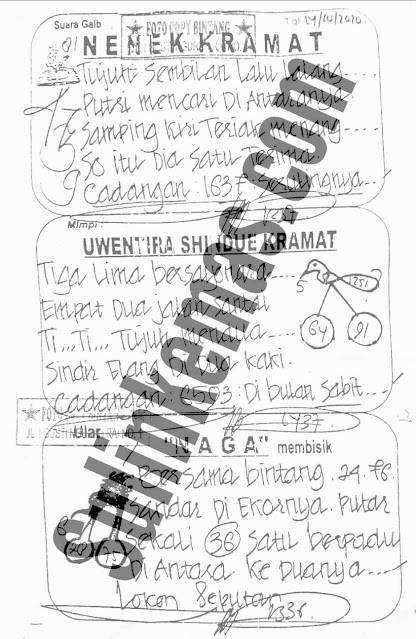 Suara Gaib
FOTO COPY BINTANG
Tgl 14/10/2020.
NEMEK KRAMAT
Tujuh Sembilan Lalu Lalang....
Putri mencari Di Antaranya
Samping Kiri Teriak menang....
So itu Dia Satu Terima.
Cadangan : 1637
Mimpi :
UWENTIRA SHINDUE KRAMAT
Tiga Lima
5
251
Empat Dua jalan santai
64
91
Ti...Ti... Tujuh
Sindir Elang Di Dua Kaki.
Cadangan : 6503 : Di bulan Sabit....
1437
"NAGA" membisik
Bersama bintang . 24 . 78.
Sandar Di Ekornya. Putar
8
Sekali 36 Satu berpadu
75
Di Antara Ke Duanya....
1336
salinkemas.com